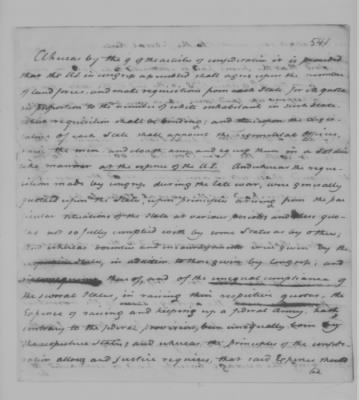 541
Whereas by the 9 of the articles of confederation it is provided
that the U.S. in congress assembled shall agree upon the number
of land forces, and make requisitions from each State for its quota
in proportion to the number of white inhabitants in such State
which requisition shall be binding; and thereupon the legis-
lature of each State shall appoint the regimental officers,
raise the men and cloath arm and equip them in a soldier
like manner at the expense of the U.S. And whereas the requi-
sitions made by congress during the late war, were generally
upon the States upon principles arising from the par-
ticular situations of the States at various periods and
not so fully complied with by some States as by others;
and whereas bounties and were given by the
States, in addition to those given by congress; and
thereof, and of the unequal compliances of
the several States, in raising their respective quotas, the
Expence of raising and keeping up a federal Army, hath
contrary to the federal provisions, been unequally born by
the respective States; and whereas, the principles of the confede-
ration allows and Justice requires, that said Expences should
be